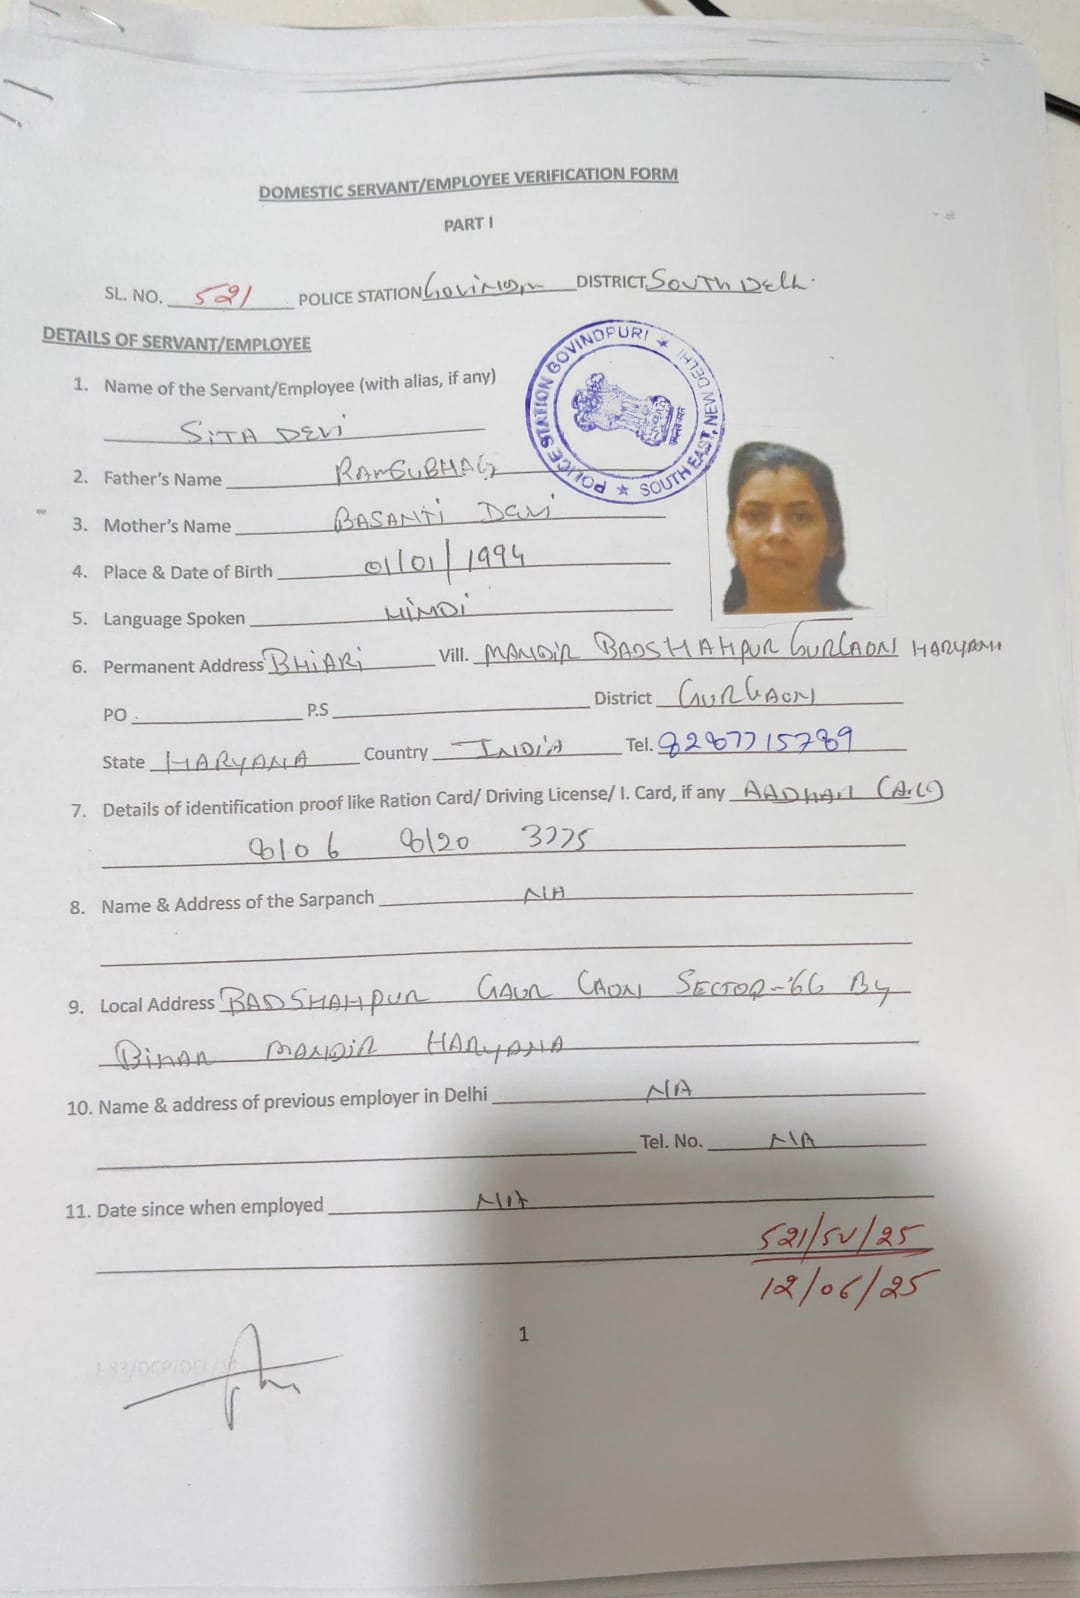 DOMESTIC SERVANT/EMPLOYEE VERIFICATION FORM
PART I
SL. NO. 521 POLICE STATION DISTRICT, SOUTH DELHI
DETAILS OF SERVANT/EMPLOYEE
POLICE STATION GOVINDPURI ★ SOUTH EAST, NEW DELHI ★
1. Name of the Servant/Employee (with alias, if any)
SITA DEVI
2. Father's Name RAMSUBHAG
3. Mother's Name BASANTI DEVI
4. Place & Date of Birth 01/01/1994
5. Language Spoken HINDI
6. Permanent Address BHIARI Vill. MANDIR BADSHAHPUR GURGAON HARYANA
PO P.S District GURGAON
State HARYANA Country INDIA Tel. 8287715789
7. Details of identification proof like Ration Card/ Driving License/ I. Card, if any AADHAR CARD
8106 8120 3775
8. Name & Address of the Sarpanch NA
9. Local Address BADSHAHPUR GAUR GAON SECTOR-66 By
MANDIR HARYANA
10. Name & address of previous employer in Delhi NA
Tel. No. NA
11. Date since when employed NA
521/SV/25
12/06/25
1